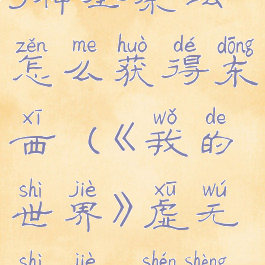 zěn me huò dé dōng
怎么获得东
xī wǒ de
西(《我的
shì jiè xū wú
世界》虚无
shì jiè shén shèng